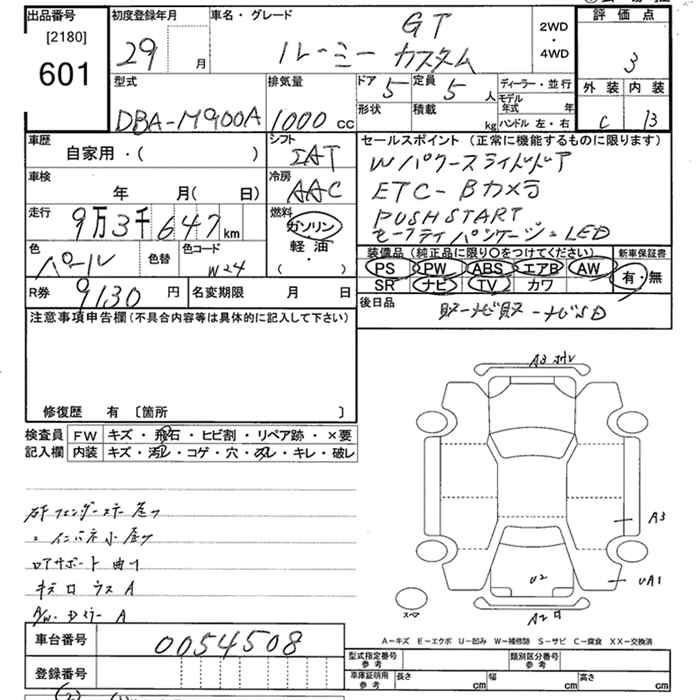 出品番号
[2180]
601
初度登録年月
29 月
車名・グレード
GT
ルーミー カスタム
2WD
・
4WD
評価点
3
外装 内装
C B
型式
DBA-M900A
排気量
1000 cc
ドア
5
定員
5 人
形状
積載
kg
ディーラー・並行
モデル年式 年
ハンドル 左・右
車歴
自家用・( )
シフト
IAT
車検
年 月( 日)
冷房
AAC
走行
9万3千647km
燃料
ガソリン
軽油
( ・ )
色
パール
色替
色コード
W24
R券
9130 円
名変期限 月 日
セールスポイント (正常に機能するものに限ります)
Wパワースライドドア
ETC-Bカメラ
PUSH START
LED
装備品(純正品に限り○をつけてください)
PS PW ABS エアB AW
SR ナビ TV カワ
新車保証書
有・無
後日品
注意事項申告欄(不具合内容等は具体的に記入して下さい)
修復歴 有 〔箇所 〕
検査員記入欄
FW キズ・飛石・ヒビ割・リペア跡・×要
内装 キズ・汚レ・コゲ・穴・スレ・キレ・破レ
A3
A3
U2
UA1
A2
スペア
ロアサポート曲り
A-キズ E-エクボ U-凹み W-補修跡 S-サビ C-腐食 XX-交換済
車台番号
0054508
登録番号
型式指定番号
参考
類別区分番号
参考
車庫証明用
参考
長さ cm
幅 cm
高さ cm